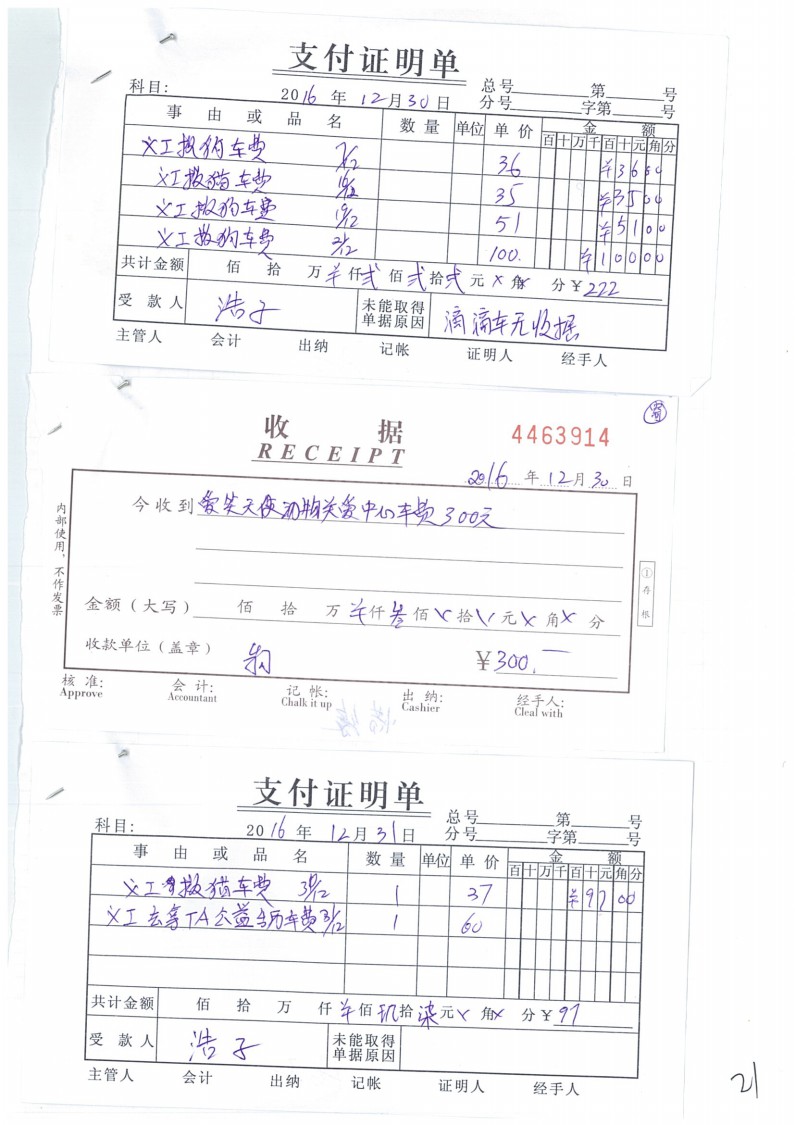 支付证明单
科目: 2016 年 12 月 30 日 总号 第 号
分号 字第 号
事 由 或 品 名 数 量 单位 单 价 金 额
百 十 万 千 百 十 元 角 分
义工搬狗车费 7/12 36 ¥3600
义工搬猫车费 35 ¥3500
义工搬狗车费 19/12 51 ¥5100
义工搬狗车费 100. ¥10000
共计金额 佰 拾 万 ¥ 仟 弍 佰 弍 拾 弍 元 × 角 × 分 ¥ 222
受 款 人 浩子 未能取得单据原因 滴滴车无收据
主管人 会计 出纳 记帐 证明人 经手人
收 据 4463914
RECEIPT
2016 年 12 月 30 日
今收到 爱笑天使动物关爱中心车费300元
内部使用,不作发票
① 存根
金额(大写) 佰 拾 万 ¥ 仟 叁 佰 × 拾 × 元 × 角 × 分
收款单位(盖章) ¥300.—
核 准: 会 计: 记 帐: 出 纳: 经手人:
Approve Accountant Chalk it up Cashier Cleal with
支付证明单
科目: 2016 年 12 月 31 日 总号 第 号
分号 字第 号
事 由 或 品 名 数 量 单位 单 价 金 额
百 十 万 千 百 十 元 角 分
义工搬猫车费 30/12 1 37 ¥9700
义工去拿TA公益台历车费 31/12 1 60
共计金额 佰 拾 万 仟 ¥ 佰 玖 拾 柒 元 × 角 × 分 ¥ 97
受 款 人 浩子 未能取得单据原因
主管人 会计 出纳 记帐 证明人 经手人
21